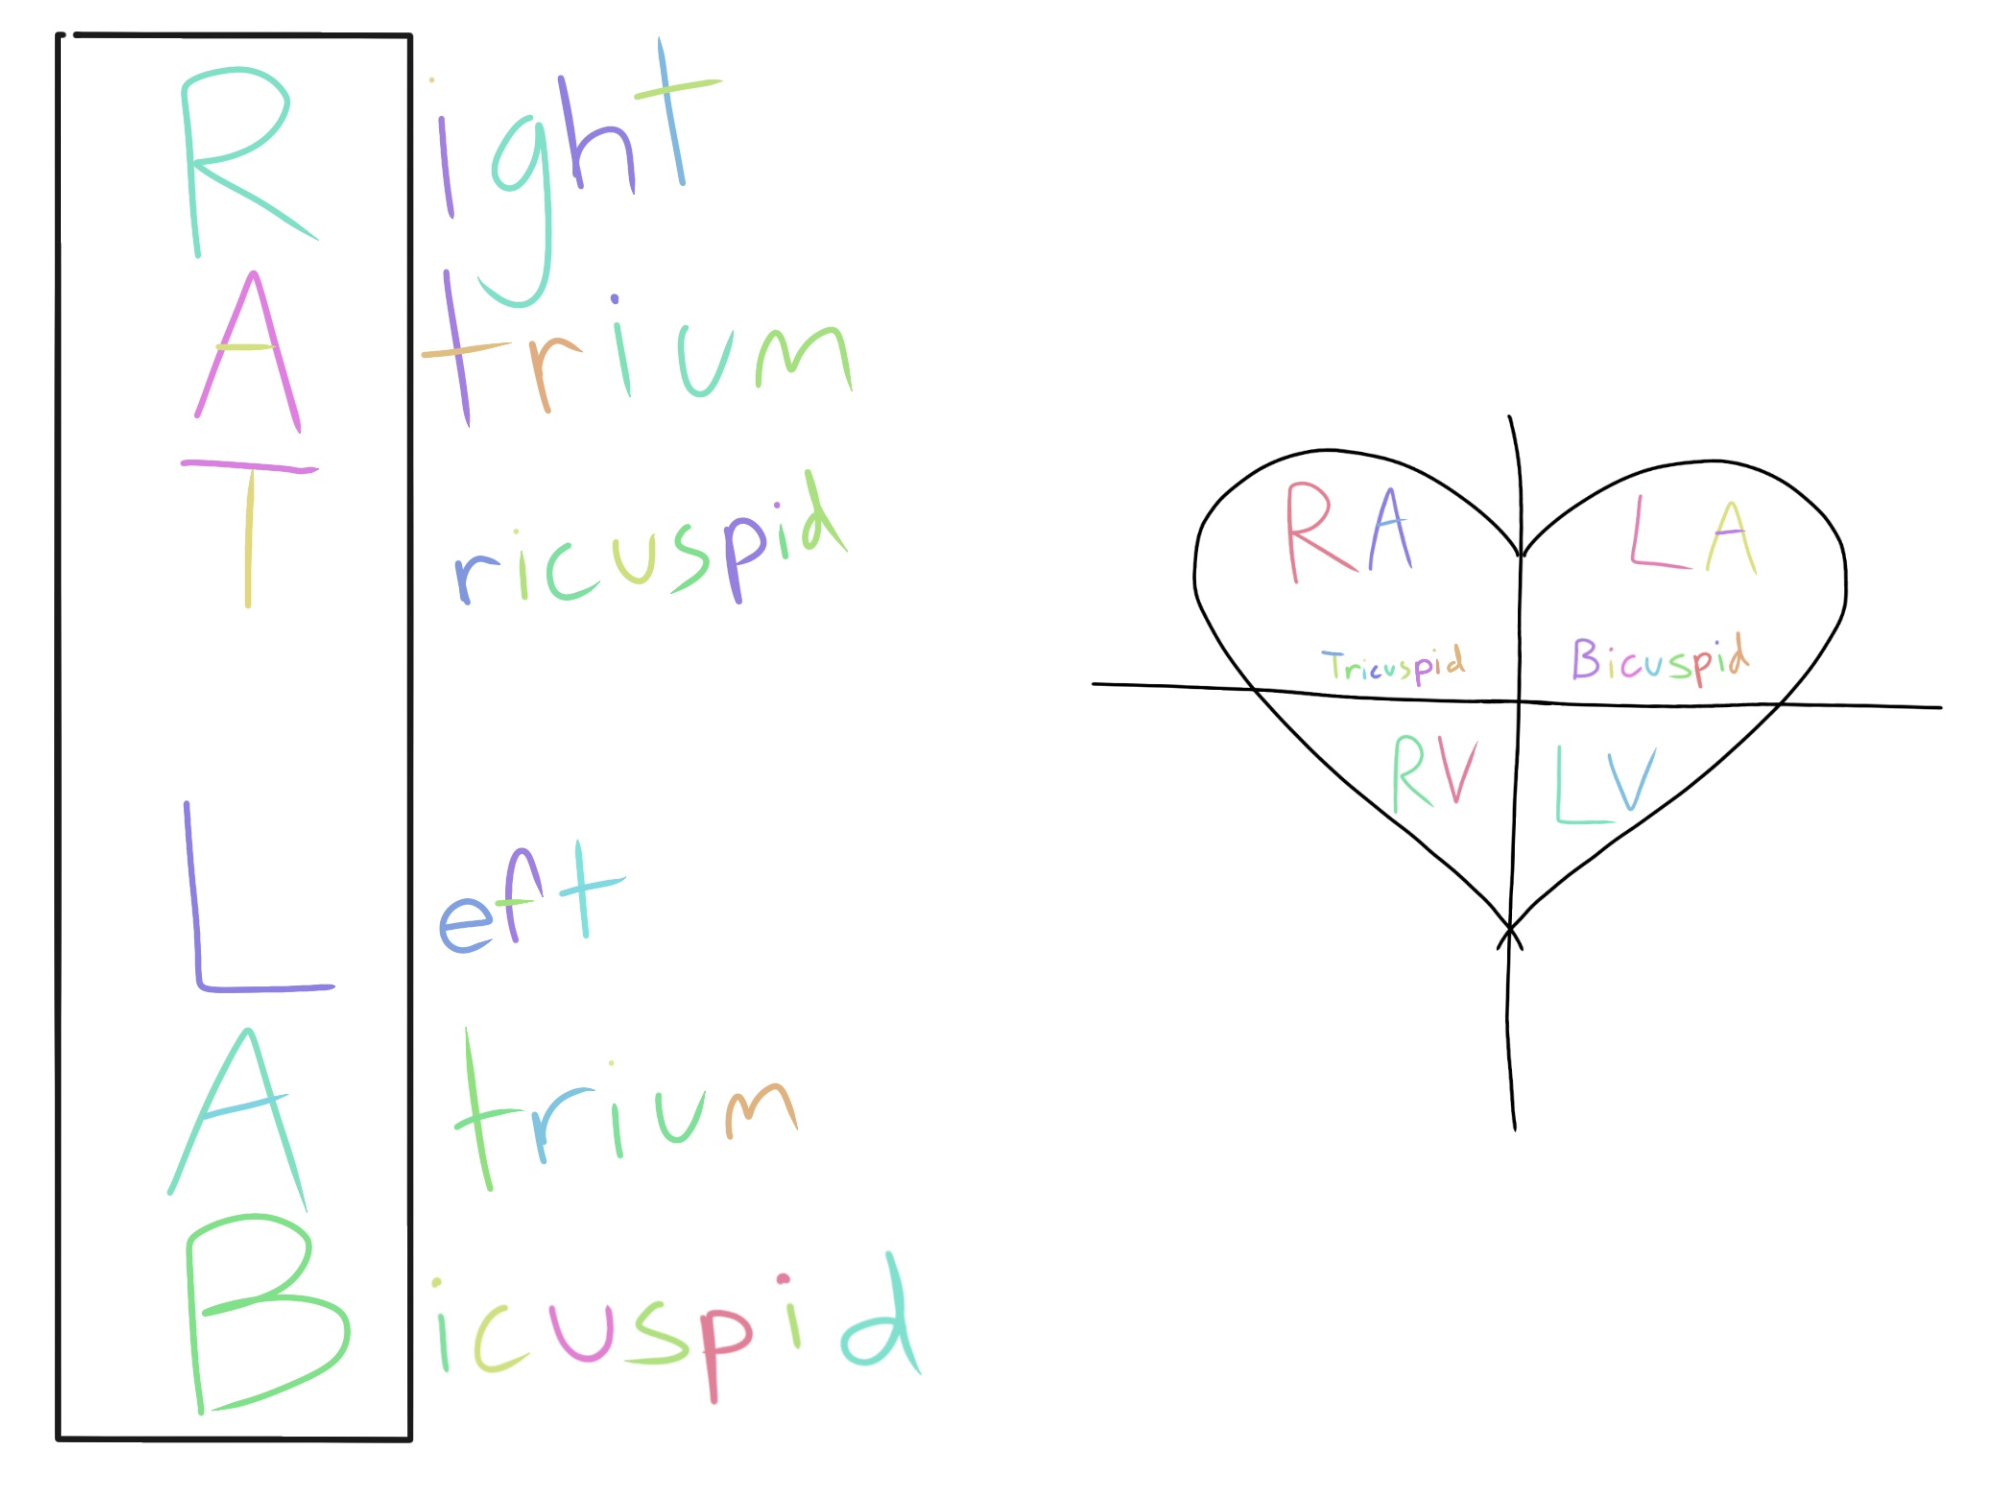 Right
Atrium
Tricuspid
Left
Atrium
Bicuspid
RA LA
Tricuspid Bicuspid
RV LV